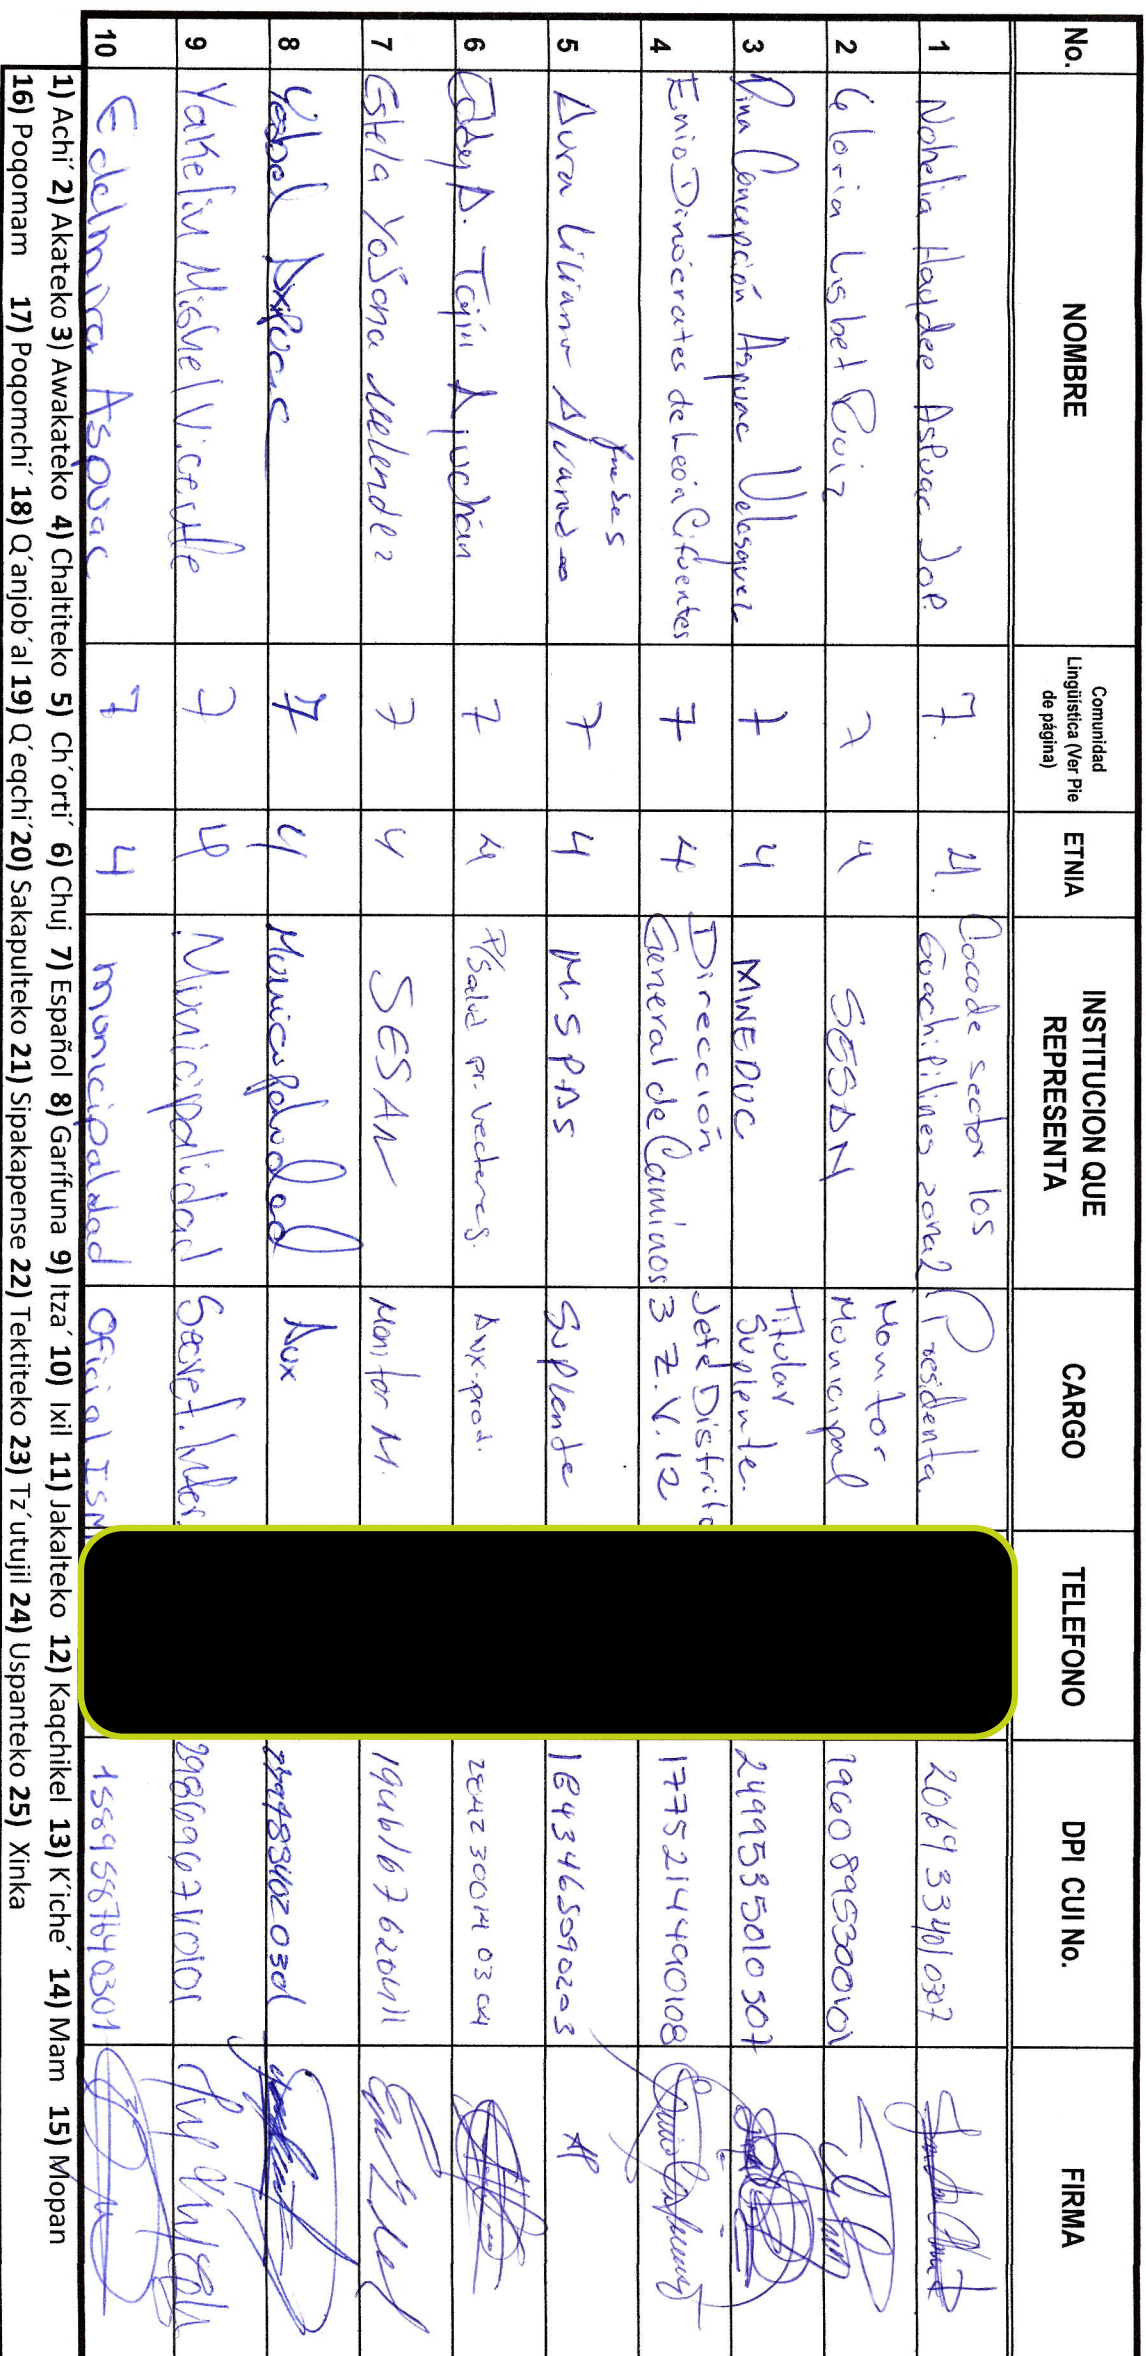 No. NOMBRE Comunidad Lingüística (Ver Pie de página) ETNIA INSTITUCION QUE REPRESENTA CARGO TELEFONO DPI CUI No. FIRMA
1 Nohelia Haydee Aspuac Jop. 7. 4. Cocode sector los Guachipilines zona 2 Presidenta. 2069 33401 0307
2 Gloria Lisbet Ruiz 7 4 SESAN Monitor Municipal 1960 89530 0101
3 Dina Concepción Aspuac Velasquez 7 4 MINEDUC Titular Suplente. 2499535010307
4 Enio Dinócrates de León Cifuentes 7 4 Dirección General de Caminos Jefe Distrito 3 Z.V. 12 1775214490108
5 Aura Liliana Alvarado 7 4 MSPAS Suplente 1643465090203
6 A. Tajín Ajuchán 7 4 P/Salud pr. Vectores. Aux. prod. 2842300140304
7 Estela Yojana Melendez 7 4 SESAN Monitor M.
8 7 4 Municipalidad Aux
9 Yakelin Mishel Vicente 7 4 Municipalidad Secret.
10 Edelmira Aspuac 7 4 municipalidad Oficial ISM 1589587640301
1) Achi´ 2) Akateko 3) Awakateko 4) Chaltiteko 5) Ch´orti´ 6) Chuj 7) Español 8) Garífuna 9) Itza´ 10) Ixil 11) Jakalteko 12) Kaqchikel 13) K´iche´ 14) Mam 15) Mopan
16) Poqomam 17) Poqomchi´ 18) Q´anjob´al 19) Q´eqchi´ 20) Sakapulteko 21) Sipakapense 22) Tektiteko 23) Tz´utujil 24) Uspanteko 25) Xinka